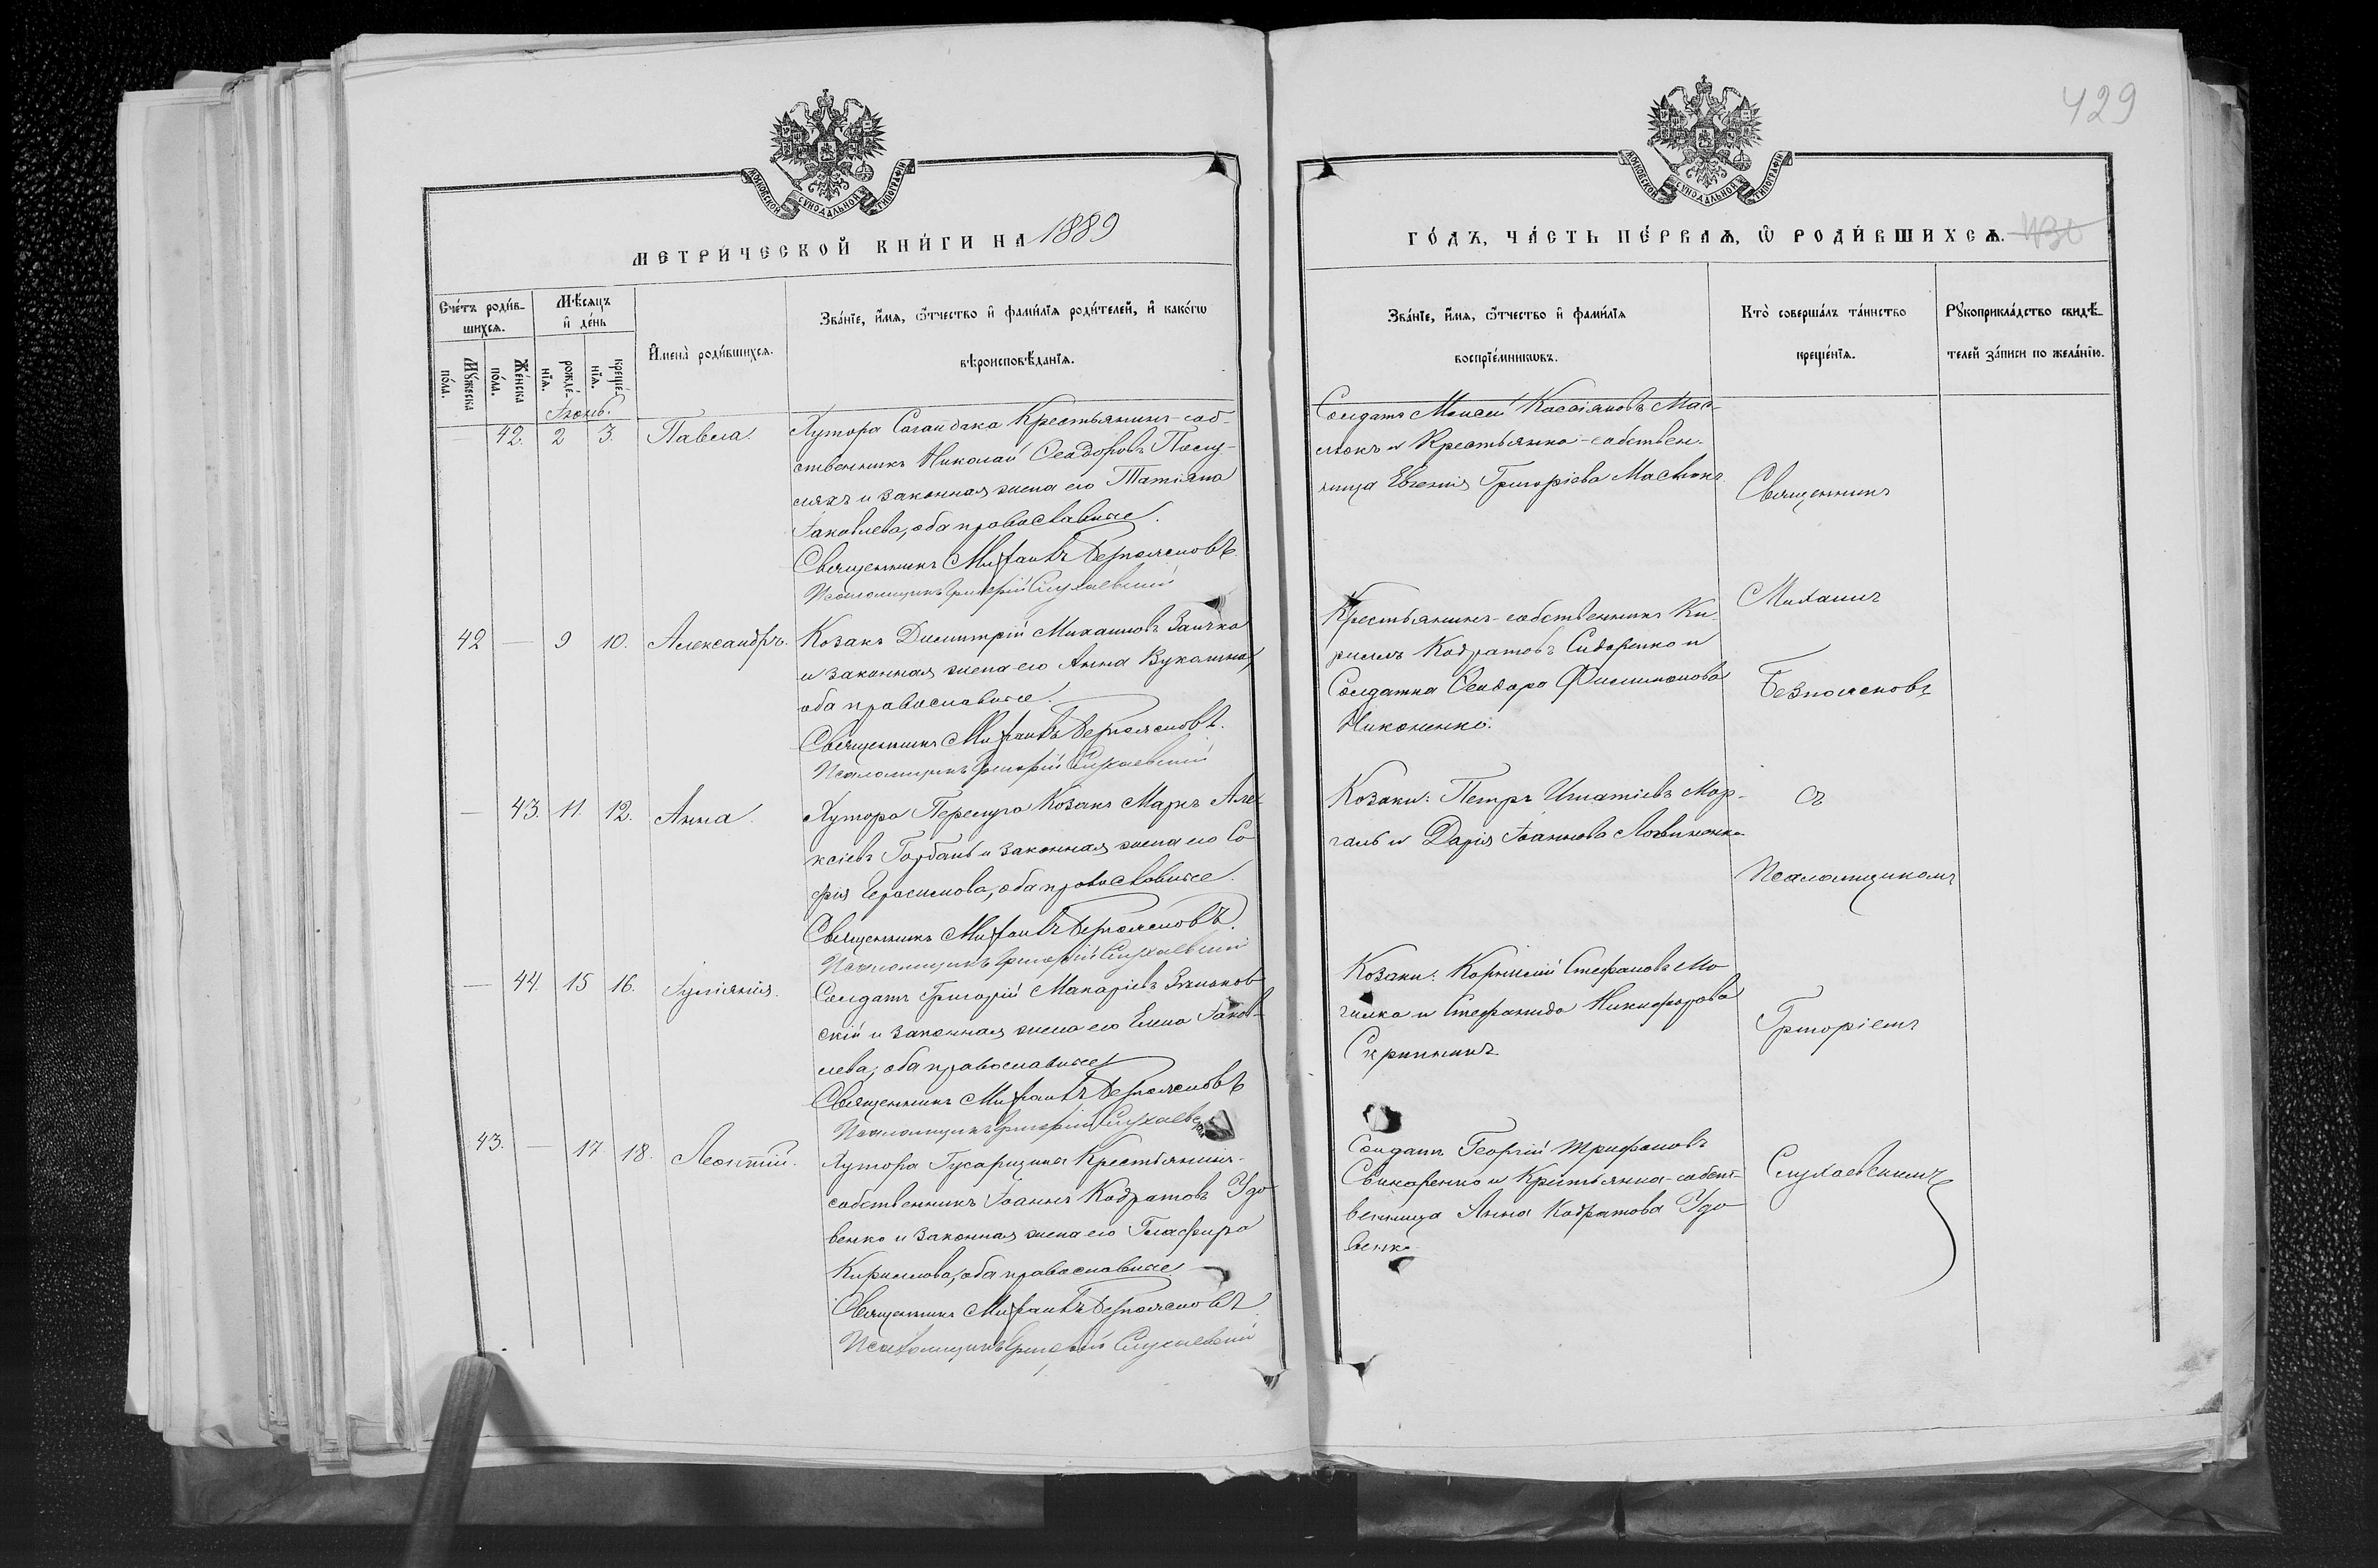 429
МОСКОВСКОЙ СУНОДАЛЬНОЙ ТИПОГРАФІИ
МОСКОВСКОЙ СУНОДАЛЬНОЙ ТИПОГРАФІИ
МЕТРИ́ЧЕСКОЙ КНИ́ГИ НА 1889
ГО́ДЪ, ЧА́СТЬ ПЕ́РВАѦ, Ѿ РОДИ́ВШИХСѦ. 430
Сче́тъ роди́в-
шихсѧ.
Мꙋ́жеска
по́ла.
Же́нска
по́ла.
Мѣ́сѧцъ
и де́нь
рожде́-
нїѧ.
креще́-
нїѧ.
Имена̀ роди́вшихсѧ.
Зва́нїе, и́мѧ, ѻ́тчество и фами́лїѧ роди́телей, и како́гѡ
вѣроисповѣ́данїѧ.
Зва́нїе, и́мѧ, ѻ́тчество и фами́лїѧ
воспрїе́мникѡвъ.
Кто̀ соверша́лъ та́инство
креще́нїѧ.
Рꙋкоприкла́дство свидѣ́-
телей за́писи по жела́нїю.
Іюнь.
42. 2 3. Павла.
Хутора Сагайдака Крестьянинъ-соб-
ственникъ Николай Ѳеодоровъ
и законная жена его Татіана
Іаковлева, оба православные.
Священникъ Михаилъ Безпалсновъ
Псаломщикъ Григорій Слухаевскій
Солдатъ Моисей Кассіановъ Мас-
люкъ и Крестьянка-собствен-
ница Евгенія Григоріева Маслюкъ
42 — 9 10. Александръ.
Козакъ Димитрій Михаиловъ Заичко
и законная жена его Анна Вуколова,
оба православные.
Священникъ Михаилъ Безпалсновъ.
Псаломщикъ Григорій Слухаевскій
Крестьянинъ-собственникъ Ки-
риллъ Кодратовъ Сидоренко и
Солдатка Ѳеодора Филимонова
Никоненко.
— 43. 11. 12. Анна.
Хутора Козакъ Маркъ Але-
ксіевъ Горбань и законная жена его Со-
фія Герасимова, оба православные.
Священникъ Михаилъ Безпалсновъ.
Псаломщикъ Григорій Слухаевскій
Козаки: Петръ Игнатіевъ Мор-
галь и Дарія Іоаннова Логвиненко
— 44. 15 16. Іуліанія.
Солдатъ Григорій Макаріевъ Зеньков-
скій и законная жена его Елена Іаков-
лева, оба православные
Священникъ Михаилъ Безпалсновъ
Псаломщикъ Григорій Слухаевскій
Козаки: Корнилій Стефановъ Мо-
гилка и Стефанида Никифорова
Скрипникъ
43. — 17 18. Леонтій.
Хутора Гусарщина Крестьянинъ-
собственникъ Іоаннъ Кодратовъ Удо-
венко и законная жена его Глафира
Кириллова, оба православные
Священникъ Михаилъ Безпалсновъ
Псаломщикъ Григорій Слухаевскій
Солдатъ Георгій Трифоновъ
Свинаренко и Крестьянка-собст-
венница Анна Кодратова Удо-
венко
Священникъ
Михаилъ
Безпалсновъ
съ
Псаломщикомъ
Григоріемъ
Слухаевскимъ